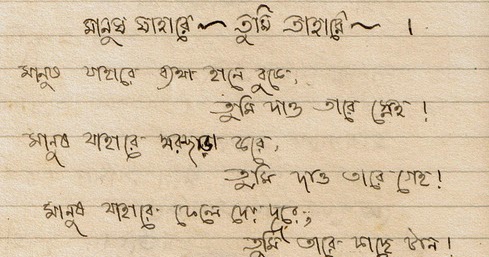 মানুষ যাহারে ~ তুমি তাহারে ~ ।
মানুষ যাহারে ব্যথা হানে বুকে,
তুমি দাও তারে স্নেহ !
মানুষ যাহারে ঘরছাড়া করে,
তুমি দাও তারে গেহ !
মানুষ যাহারে ফেলে দেয় দূরে,
তুমি তারে কাছে টান !